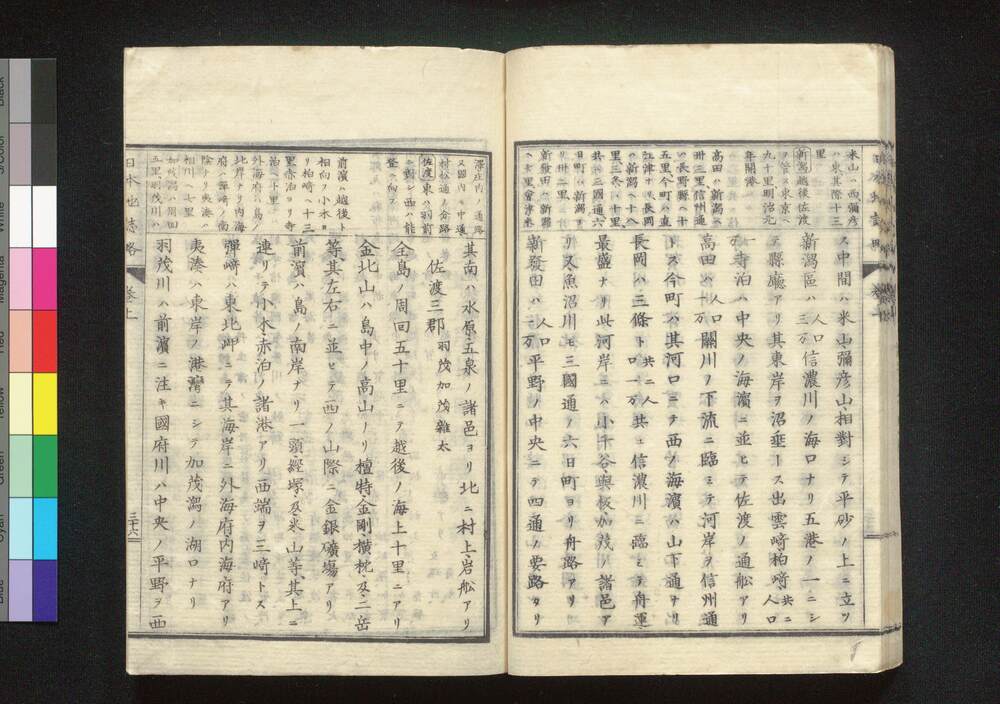 米山ハ西彌彦
ハ東其隙十三
里
新潟越後佐渡
ヲ管ス東京ヘ
九十里明治元
年開港
高田ハ新潟ヘ
卅三里信州通
ハ長野縣ヘ十
五里今町ハ直
江津トモ長岡
ハ新潟ヘ十八
里三条ヘ十里
其ハ三國通六
日町ハ新潟ヨ
リ卅二里
新發田ハ新潟
ヘ七里會津米
ス中間ハ米山彌彦山、相對シテ平砂ノ上ニ立ツ
新潟區ハ人口三万信濃川ノ海口ナリ五港ノ一ニシ
テ縣廳アリ其東岸ヲ沼垂トス出雲﨑柏﨑共ニ人口
一万寺泊ハ中央ノ海濱ニ並ヒテ佐渡ノ通舩アリ
高田ハ人口關川ノ下流ニ臨ミテ河岸ヲ信州通
トス今町ハ其河口ニテ西ノ海濱ハ山下通ナリ
長岡ハ三條ト共ニ人口一万共ニ信濃川ニ臨ミテ舟運
最盛ナリ此河岸ニハ小千谷、與板、加茂ノ諸邑ア
リ又魚沼川モ三國通ノ六日町ヨリ舟路アリ
新發田ハ人口二万平野ノ中央ニテ四通ノ要路タリ
澤庄内ノ通路
又國内ノ中通
村松通ノ會路
佐渡東ハ羽前
ニ對シ西ハ能
登ニ向フ
前濱ハ越後ト
相向フ小木ヨ
リ柏﨑ヘ十三
里赤泊ヨリ寺
泊ヘ十里
外海府ハ島ノ
北岸ナリ内海
府ハ彈﨑ノ南
陰ナリ夷湊ハ
相川ヘ七里
加茂潟ハ周回
五里羽茂川ハ
其南ハ水原、五泉ノ諸邑ヨリ北ニ村上、岩舩アリ
佐渡三郡 羽茂加茂雜太
全島ノ周回五十里ニテ越後ノ海上十里ニアリ
金北山ハ島中ノ高山ナリ檀特金剛横枕、及二岳
等、其左右ニ並ヒテ西ノ山際ニ金銀礦塲アリ
前濱ハ島ノ南岸ナリ一頭、經塚、及米山等、其上ニ
連リテ小木、赤泊ノ諸港アリ西端ヲ三﨑トス
彈﨑ハ東北岬ニテ其海岸ニ外海府、内海府アリ
夷湊ハ東岸ノ港灣ニシテ加茂潟ノ湖口ナリ
羽茂川ハ前濱ニ注キ國府川ハ中央ノ平野ヲ西
日本地誌略
卷上
三十六